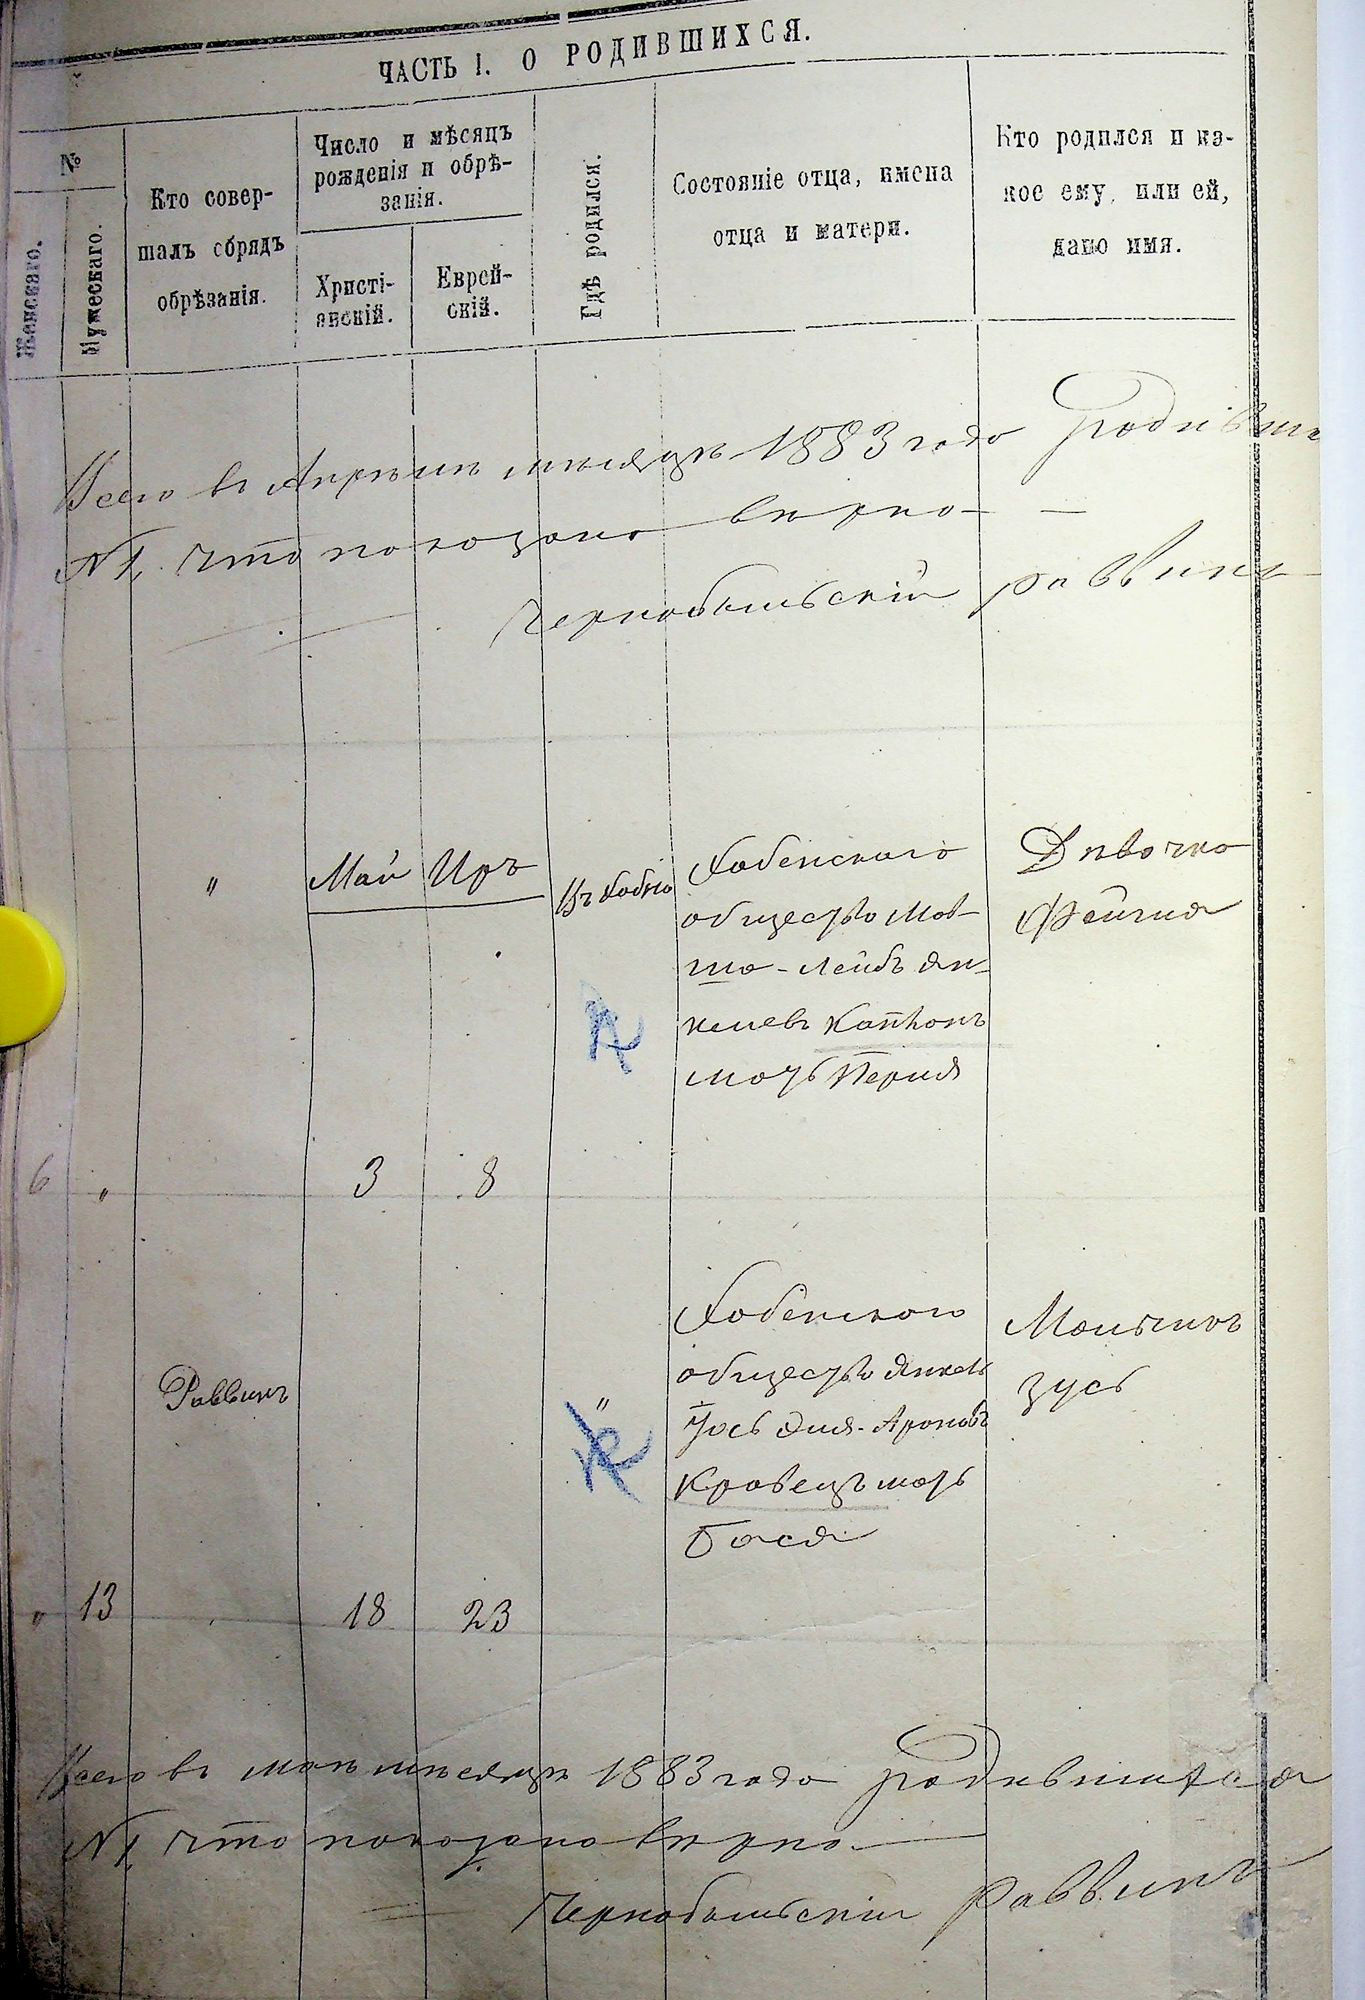 ЧАСТЬ I. О РОДИВШИХСЯ.
№
Женскаго.
Мужескаго.
Кто совер-
шалъ обрядъ
обрѣзанія.
Число и мѣсяцъ
рожденія и обрѣ-
занія.
Христі-
анскій.
Еврей-
скій.
Гдѣ родился.
Состояніе отца, имена
отца и матери.
Кто родился и ка-
кое ему, или ей,
дано имя.
Всего въ Апрѣлѣ мѣсяцѣ 1883 года родивши
№ 1, что показано вѣрно —
Чернобыльскій раввинъ
6
"
"
Май
Иръ
3
8
Въ Хабно
Хабенскаго
общества Мов-
ша-Лейбъ Ян-
келевъ Каплонъ
мать Перля
Дѣвочка
Фейгля
"
13
Раввинъ
18
23
"
Хабенскаго
общества Янкель
Іось Эля-Ароновъ
Кравецъ мать
Бася
Мальчикъ
Зусь
Всего въ маѣ мѣсяцѣ 1883 года родившихся
№ 1, что показано вѣрно —
Чернобыльскій раввинъ